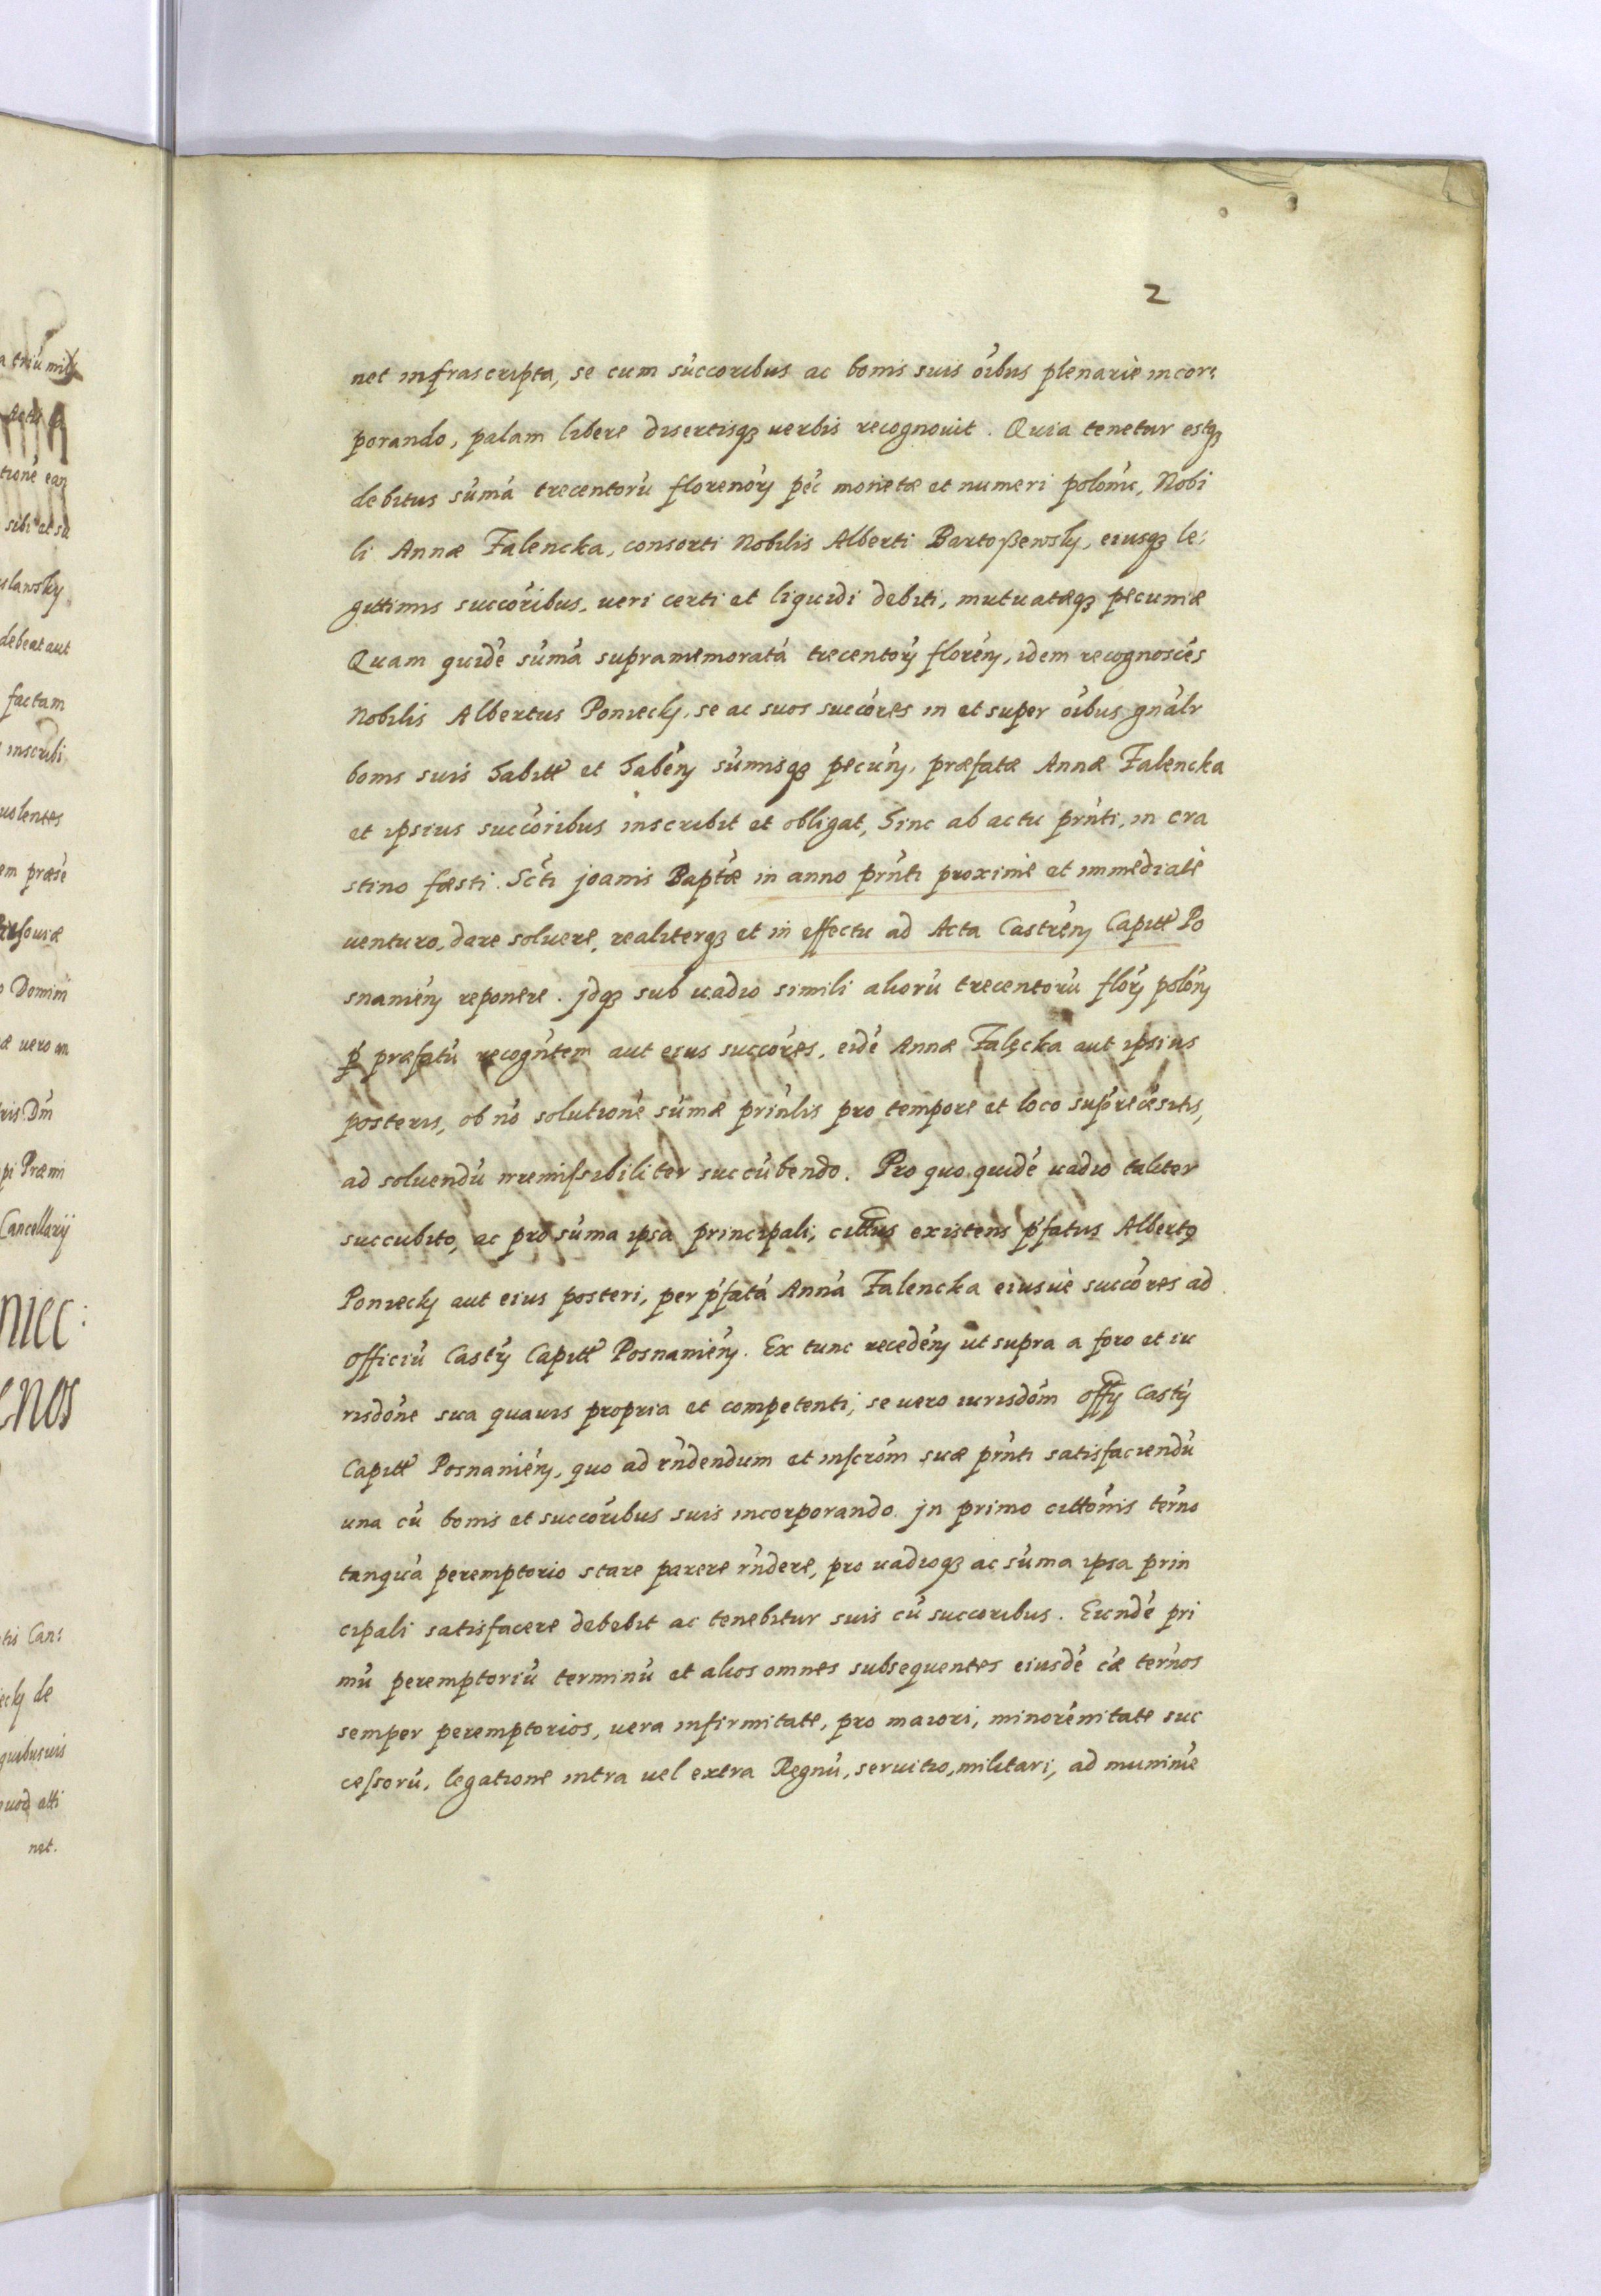 2
net infrascripta, se cum succoribus ac bonis suis oibus plenariè incor:
porando, palam libere disertisqȝ uerbis recognouit. Quia tenetur estqȝ
debitus sumá trecentorú florenorȝ pec monetæ et numeri polonic, Nobi
li Annæ Falencka, consorti Nobilis Alberti Bartoßewsky, eiusqȝ le:
gittimis succoribus, ueri certi et liquidi debiti, mutuatæqȝ pecuniæ
Quam quidé sumá supramemoratá trecentorȝ florenȝ, idem recognoscés
Nobilis Albertus Poniecky, se ac suos succores in et super oibus gnalr
bonis suis habitt et habenȝ sumisqȝ pecunȝ, præfatæ Annæ Falencka
et ipsius succoribus inscribit et obligat, hinc ab actu prnti, in cra
stino fæsti Scti joanis Baptæ in anno prnti proximè et immediatè
uenturo, dare soluere, realiterqȝ et in effectu ad Acta Castrenȝ Capitt Po
snanienȝ reponere. jdqȝ sub uadio simili aliorú trecentorú florȝ polonȝ
ꝑ præfatú recogntem aut eius succores, eidé Annæ Falęcka aut ipsius
posteris, ob nó solutioné sumæ prinlis pro tempore et loco
ad soluendú irremissibiliter succúbendo. Pro quo quidé uadio taliter
succubito, ac pro suma ipsa principali, cittus existens pfatus Albertꝯ
Poniecky aut eius posteri, per pfatá Anná Falencka eiusuè succores ad
officiú Castrȝ Capitt Posnanienȝ. Ex tunc recedenȝ ut supra a foro et iu
risdone sua quauis propria et competenti, se uero iurisdom offȳ Castrȝ
Capitt Posnanienȝ, quo ad rndendum et inscrom suæ prnti satisfaciendú
una cú bonis et succoribus suis incorporando. jn primo cittonis terno
tanquá peremptorio stare parere rndere, pro uadioqȝ ac suma ipsa prin
cipali satisfacere debebit ac tenebitur suis cú succoribus. Eundé pri
mú peremptoriú terminú et alios omnes subsequentes eiusdé cæ ternos
semper peremptorios, uera infirmitate, pro maiori, minorénitate suc
cessorú, legatione intra uel extra Regnú, seruitio, militari, ad munime
a triú mill
tioné ean
sibi et su
slawsky
debeat aut
factam
inscribi
uolentes
em præsé
Domini
æ uero an
ris Dm
pi Præmi
Cancellarij
niec:
enos
tis Can:
ecky de
quibusuis
uod atti
net.